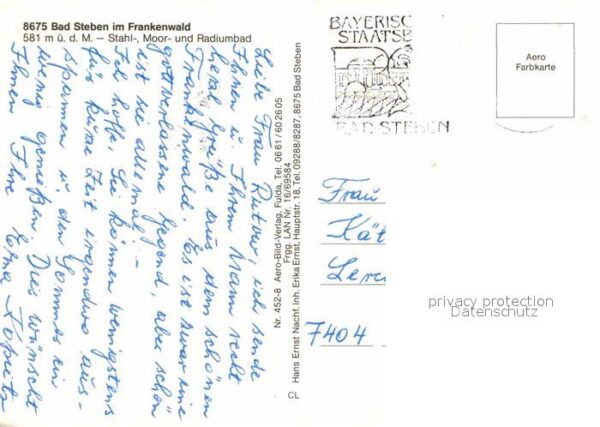 8675 Bad Steben im Frankenwald
581 m ü. d. M. – Stahl-, Moor- und Radiumbad
Liebe Frau Rutow, ich sende
Ihnen u. Ihrem Mann recht
herzl. Grüße aus dem schönen
Frankenwald. Es ist zwar eine
gottverlassene Gegend, aber schön
ist sie allemal! –
Ich hoffe, Sie können wenigstens
für kurze Zeit irgendwo aus-
spannen u. den Sommer ein
wenig genießen. Dies wünscht
Ihnen Ihre Erna
Nr. 452-8 Aero-Bild-Verlag, Fulda, Tel. 06 61 / 60 26 05
Frgg. LAN Nr. 16/69584
Hans Ernst Nachf. Inh. Erika Ernst, Hauptstr. 18, Tel. 09288/8287, 8675 Bad Steben
CL
BAYERISC
STAATSB
BAD STEBEN
Aero
Farbkarte
Frau
Kät
Lerc
7404
privacy protection
Datenschutz